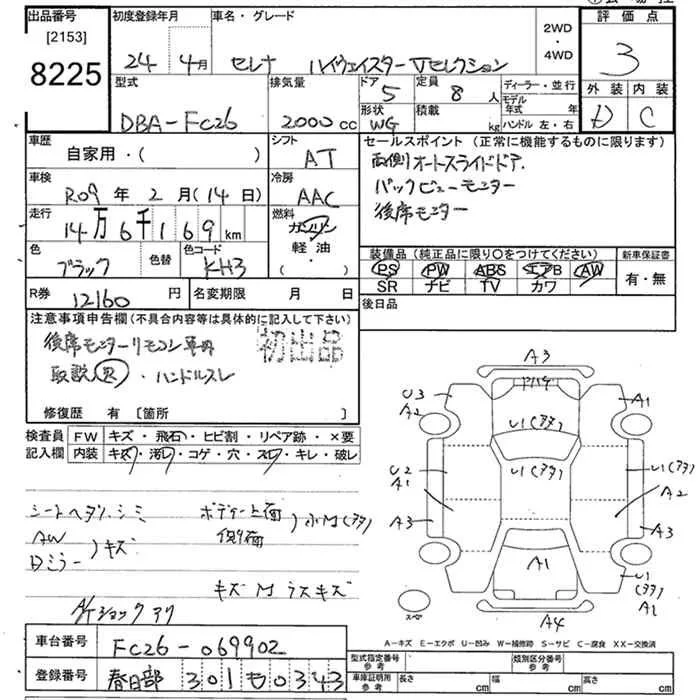 出品番号
[2153]
8225
初度登録年月
24年 4月
車名・グレード
セレナ ハイウェイスター Vセレクション
2WD
・
4WD
評価点
3
外装 内装
D C
型式
DBA-FC26
排気量
2000cc
ドア
5
形状
WG
定員
8人
積載
kg
ディーラー・並行
モデル年式 年
ハンドル 左・右
車歴
自家用・( )
シフト
AT
車検
R09年 2月 (14日)
冷房
AAC
走行
14万6千169km
燃料
ガソリン
軽油
・( )
色
ブラック
色替
色コード
KH3
R券
12160円
名変期限 月 日
セールスポイント (正常に機能するものに限ります)
両側オートスライドドア.
バックビューモニター
後席モニター
装備品 (純正品に限り○をつけてください)
PS PW ABS エアB AW
SR ナビ TV カワ
新車保証書
有・無
後日品
注意事項申告欄(不具合内容等は具体的に記入して下さい)
後席モニターリモコン
初出品
取説・ハンドルスレ
修復歴 有 [箇所 ]
検査員記入欄
FW キズ・飛石・ヒビ割・リペア跡・×要
内装 キズ・汚レ・コゲ・穴・スレ・キレ・破レ
シートヘタリ.シミ
AW
Dミラー
)キズ
ボディー上面
側面
)小M(アタ)
キズM ラスキズ
A/Tショックアリ
A3
U3
A2
A1
U1(アタ)
U1(アタ)
U2
A1
U1(アタ)
A2
A3
A3
A1
U1
(アタ)
A1
スペア
A4
A-キズ E-エクボ U-凹み W-補修跡 S-サビ C-腐食 XX-交換済
車台番号
FC26-069902
登録番号
春日部 301 も 0343
型式指定番号
参考
類別区分番号
参考
車庫証明用
参考
長さ cm
幅 cm
高さ cm